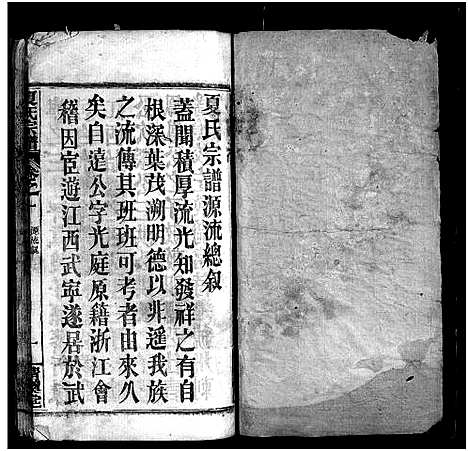 夏氏宗譜源流總叙
蓋聞積厚流光知發祥之有自
根深葉茂溯明德以非遥我族
之流傳其班班可考者由來久
矣自遠公字光庭原籍浙江會
稽因宦遊江西武寧遂居於武
夏氏宗譜
卷之一
源流叙
一